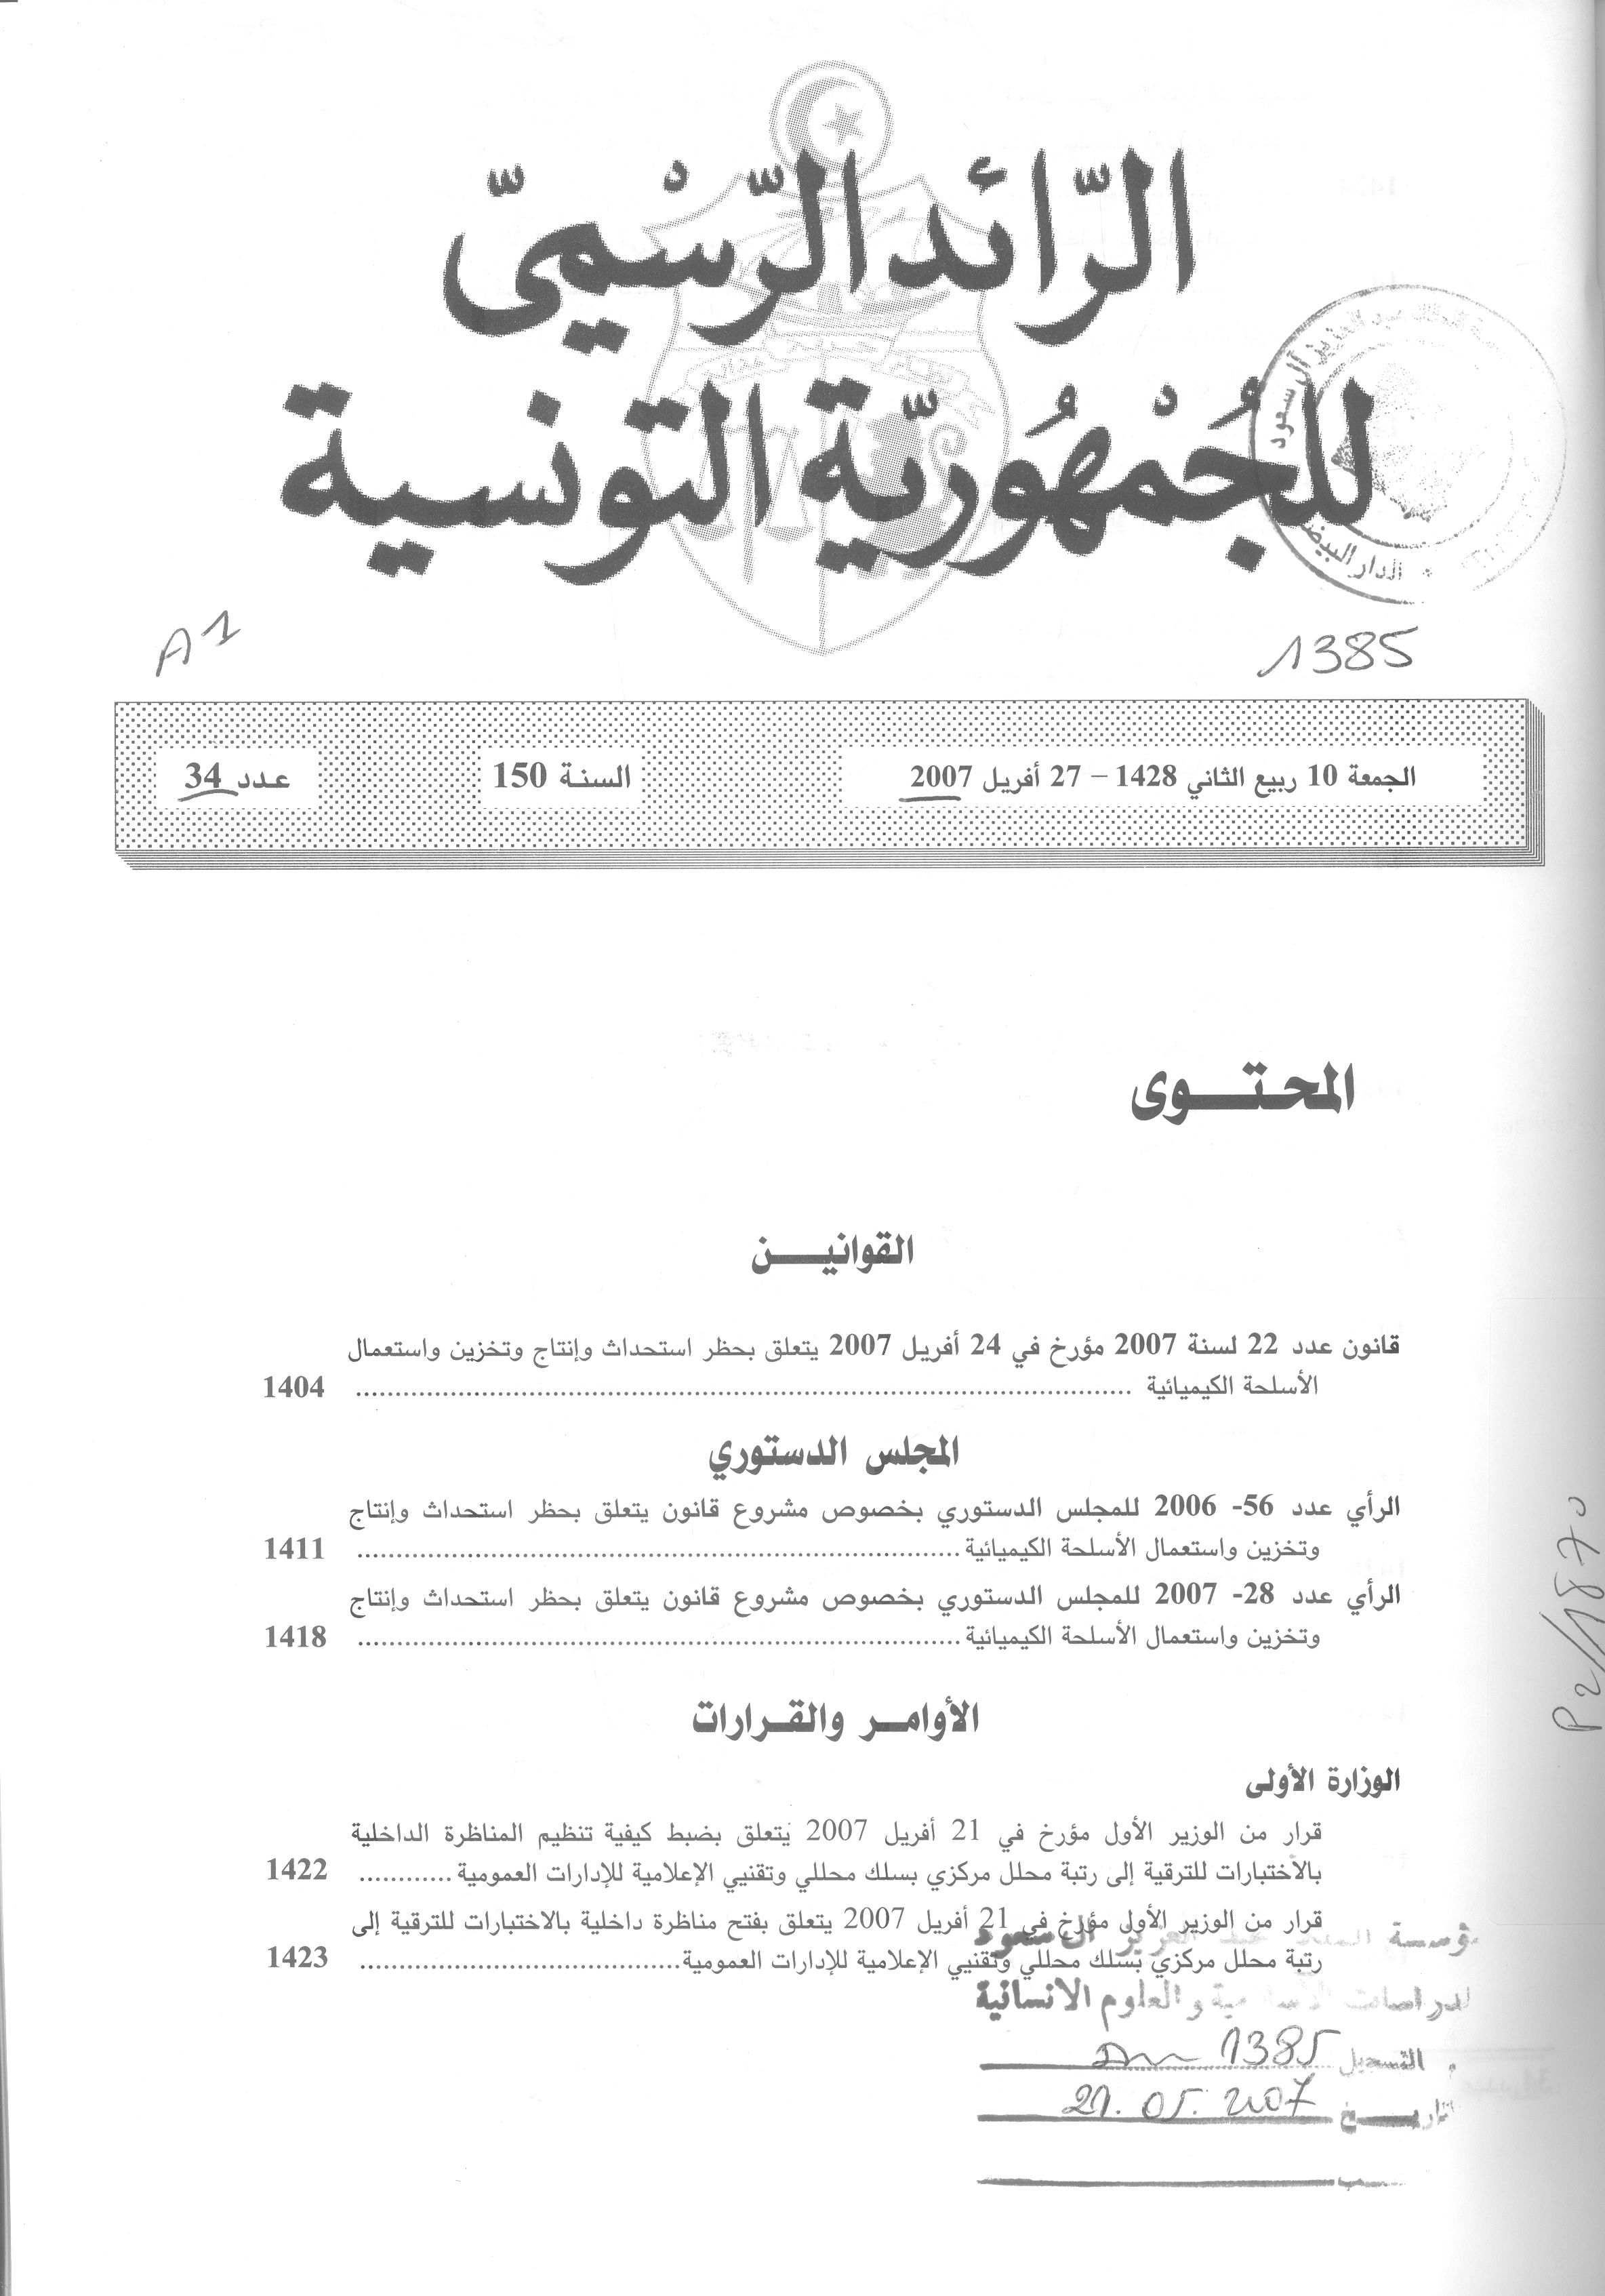 الرّائد الرّسْميّ
للجُمْهُوريّة التونسية
عبد العزيز آل سعود
الدار البيضاء
A1
1385
الجمعة 10 ربيع الثاني 1428 – 27 أفريل 2007
السنة 150
عدد 34
المحتوى
القوانين
قانون عدد 22 لسنة 2007 مؤرخ في 24 أفريل 2007 يتعلق بحظر استحداث وإنتاج وتخزين واستعمال
الأسلحة الكيميائية ........................ 1404
المجلس الدستوري
الرأي عدد 56- 2006 للمجلس الدستوري بخصوص مشروع قانون يتعلق بحظر استحداث وإنتاج
وتخزين واستعمال الأسلحة الكيميائية ........................ 1411
الرأي عدد 28- 2007 للمجلس الدستوري بخصوص مشروع قانون يتعلق بحظر استحداث وإنتاج
وتخزين واستعمال الأسلحة الكيميائية ........................ 1418
P2/1870
الأوامر والقرارات
الوزارة الأولى
قرار من الوزير الأول مؤرخ في 21 أفريل 2007 يتعلق بضبط كيفية تنظيم المناظرة الداخلية
بالاختبارات للترقية إلى رتبة محلل مركزي بسلك محللي وتقنيي الإعلامية للإدارات العمومية ............ 1422
قرار من الوزير الأول مؤرخ في 21 أفريل 2007 يتعلق بفتح مناظرة داخلية بالاختبارات للترقية إلى
رتبة محلل مركزي بسلك محللي وتقنيي الإعلامية للإدارات العمومية ........................ 1423
عبد العزيز آل سعود
والعلوم الانسانية
التسجيل 1385
التاريخ 21.05.2007